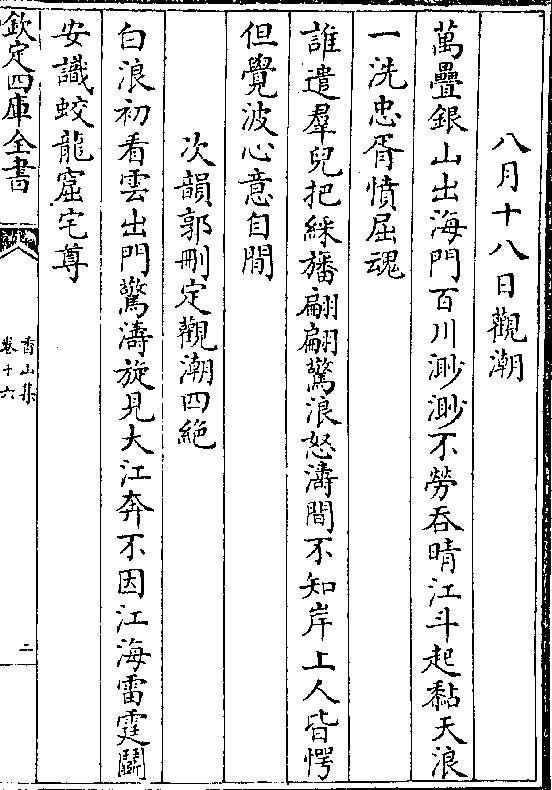 八月十八日觀潮
萬疊銀山出海門百川渺渺不勞吞晴江斗起黏天浪
一洗忠胥憤屈魂
誰遣羣兒把綵旛翩翩驚浪怒濤間不知岸上人皆愕
但覺波心意自閒
次韻郭刪定觀潮四絶
白浪初看雲出門驚濤旋見大江奔不因江海雷霆鬬
安識蛟龍窟宅尊
欽定四庫全書
香山集
卷十六
二